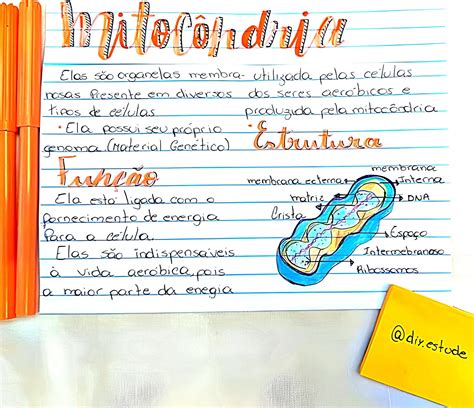 Mitocôndria
Elas são organelas membra-
nosas Presente em diversos
tipos de células
• Ela possui seu próprio
genoma (Material Genético)
Função
Ela está ligada com o
fornecimento de energia
Para a célula.
Elas são indispensáveis
à vida aeróbica, pois
a maior parte da enegia
utilizada pelas células
dos seres aeróbicos e
produzida pela mitocôdria
• Estrutura
membrana
Interna
membrana externa
matriz
DNA
Crista
Espaço
Intermembranoso
Ribossomos
@diy.estude